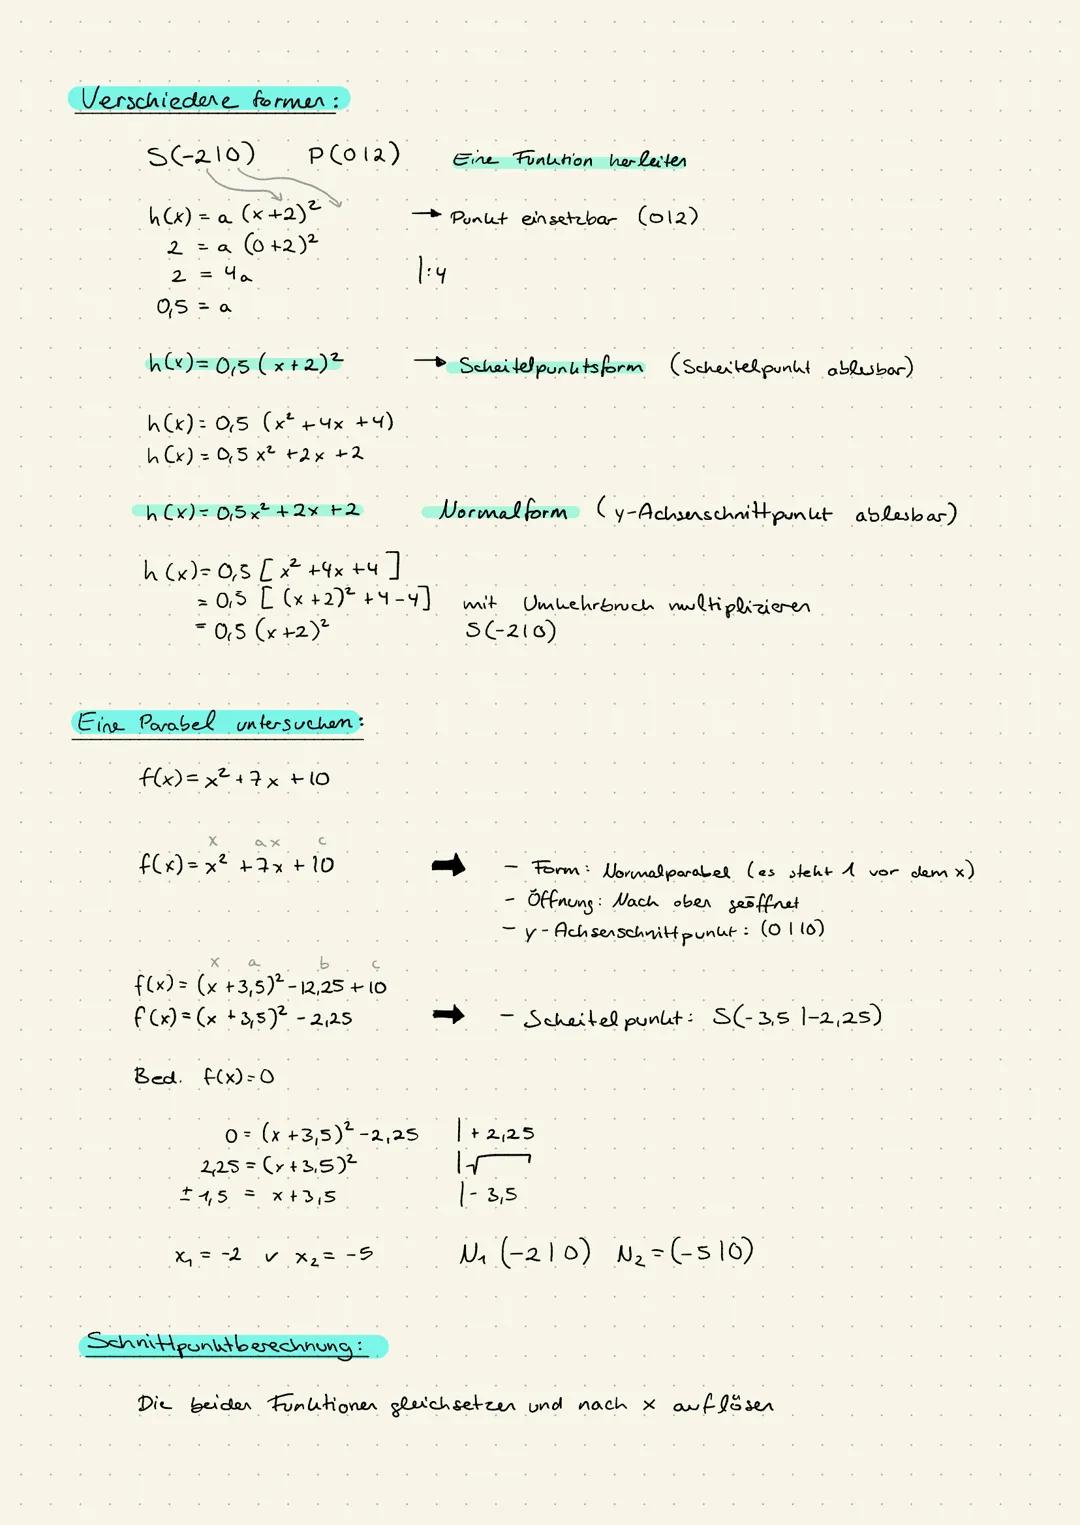 Verschiedene formen:
S(-2|0) P(0|2) Eine Funktion herleiten
h(x) = a (x+2)² → Punkt einsetzbar (0|2)
2 = a (0+2)²
2 = 4a |:4
0,5 = a
h(x) = 0,5 (x+2)² → Scheitelpunktsform (Scheitelpunkt ablesbar)
h(x) = 0,5 (x² +4x +4)
h(x) = 0,5 x² +2x +2
h(x) = 0,5x² +2x +2 Normalform (y-Achsenschnittpunkt ablesbar)
h(x) = 0,5 [x² +4x +4]
= 0,5 [(x+2)² +4-4] mit Umkehrbruch multiplizieren
= 0,5 (x+2)² S(-2|0)
Eine Parabel untersuchen:
f(x) = x² + 7x + 10
x ax c
f(x) = x² + 7x + 10 → - Form: Normalparabel (es steht 1 vor dem x)
- Öffnung: Nach oben geöffnet
- y-Achsenschnittpunkt: (0|10)
x a b c
f(x) = (x +3,5)² -12,25 + 10
f(x) = (x +3,5)² - 2,25 → - Scheitelpunkt: S(-3,5 |-2,25)
Bed. f(x) = 0
0 = (x +3,5)² -2,25 | + 2,25
2,25 = (x+3,5)² |√
± 1,5 = x+3,5 |- 3,5
x₁ = -2 ∨ x₂ = -5 N₁ (-2|0) N₂ = (-5|0)
Schnittpunktberechnung:
Die beiden Funktionen gleichsetzen und nach x auflösen